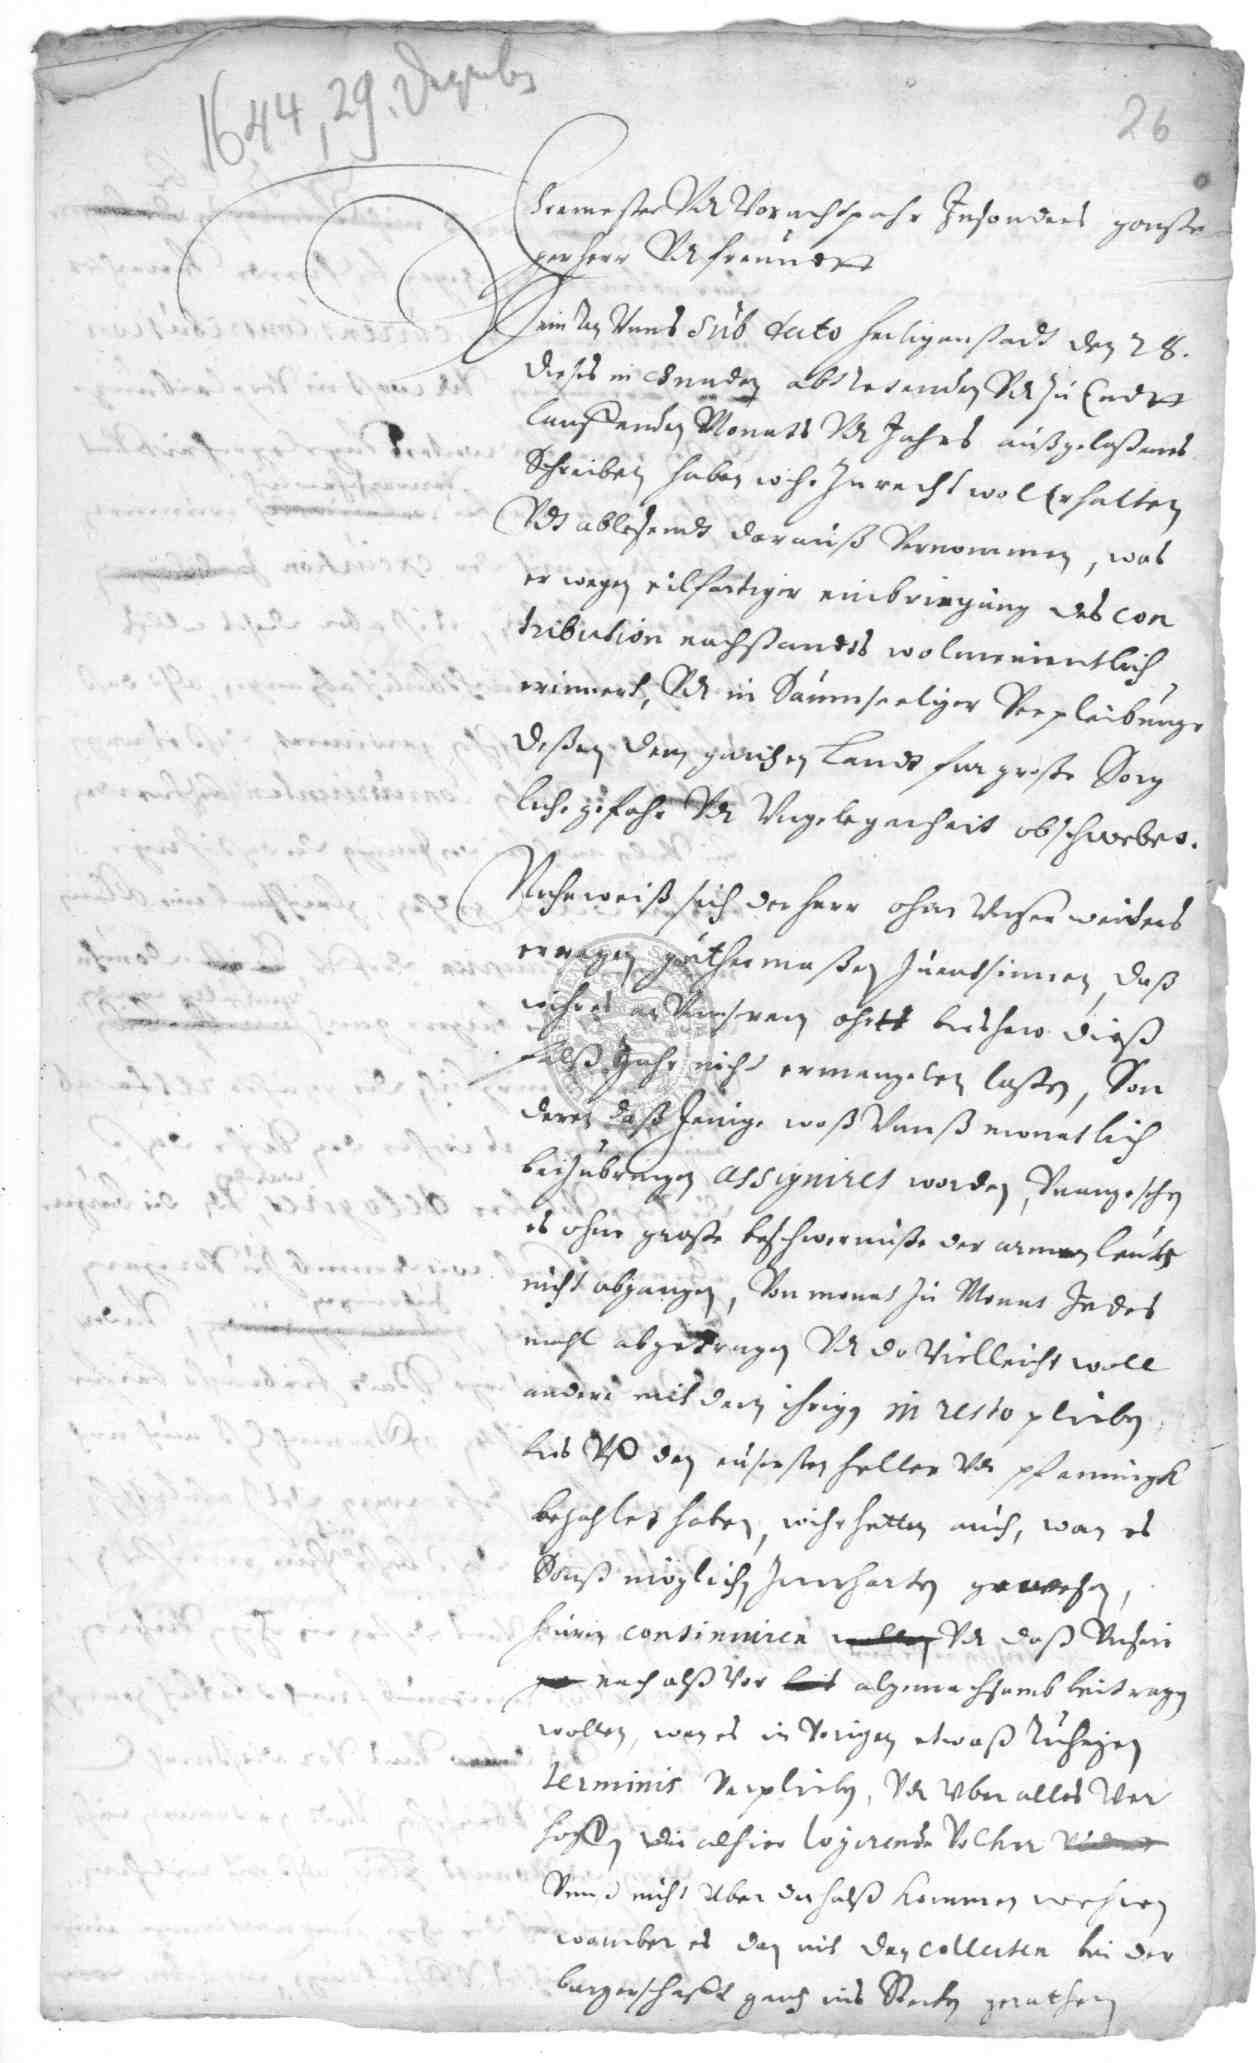 1644, 29. Dezembr
26
Ehrnvester Vnd Vorachtpahr Insonders gonste
ger herr Vnd freundtt
Sein an Vnns sub dato heiligenstadt den 28.
dieses in Gnaden ablebenden Vnd zu Endtt
lauffenden Monats Vnd Jahrs außgelaßenes
Schreiben haben wihr zu recht wol Erhalten
Vndt ablesendt darauß Vernommen, was
er wegen eilfertiger einbringung des con
tribution nachstandts wolmeinentlich
erinnert, Vnd in Saumseeliger Verpleibunge
deßen dem gantzen Lande fur große Sorg
liche gefahr Vnd Vngelegenheit obschwebet.
Nuhn weiß sich der herr ohne Vnser weiters
erregen guthermaßen zuentsinnen, daß
wihr es an Vnserem ohrtt bishero dieß
falß gahr nicht ermangelen laßen, Son
deren daß Jenige waß Vnnß monatlich
beizubringen assigniret worden, Vnangesehen
es ohne große beschwernuße der armen leute
nicht abgangen, Von monat zu Monat Jedes
mahl abgetragen Vnd da Vielleicht woll
andere mit dem ihrigen in resto plieben
bis Vf den eusersten heller Vnd pfenningk
bezahlet haben, wihr hetten auch, wan es
Sonst möglich zuerharten gewesen,
hierin continuiren wollen Vnd daß Vnserige
nach alß Vor bis algemachsamb beitragen
wollen, wan es in Vorigen etwaß ruhigen
terminis Verplieben, Vnd Vber alles Ver
hoffen die alhier logirende Völcker
Vnns nicht Vber den halß kommen wehren
worüber es dan mit den collecten bei der
burgerschafft gantz ins Stecken gerathen